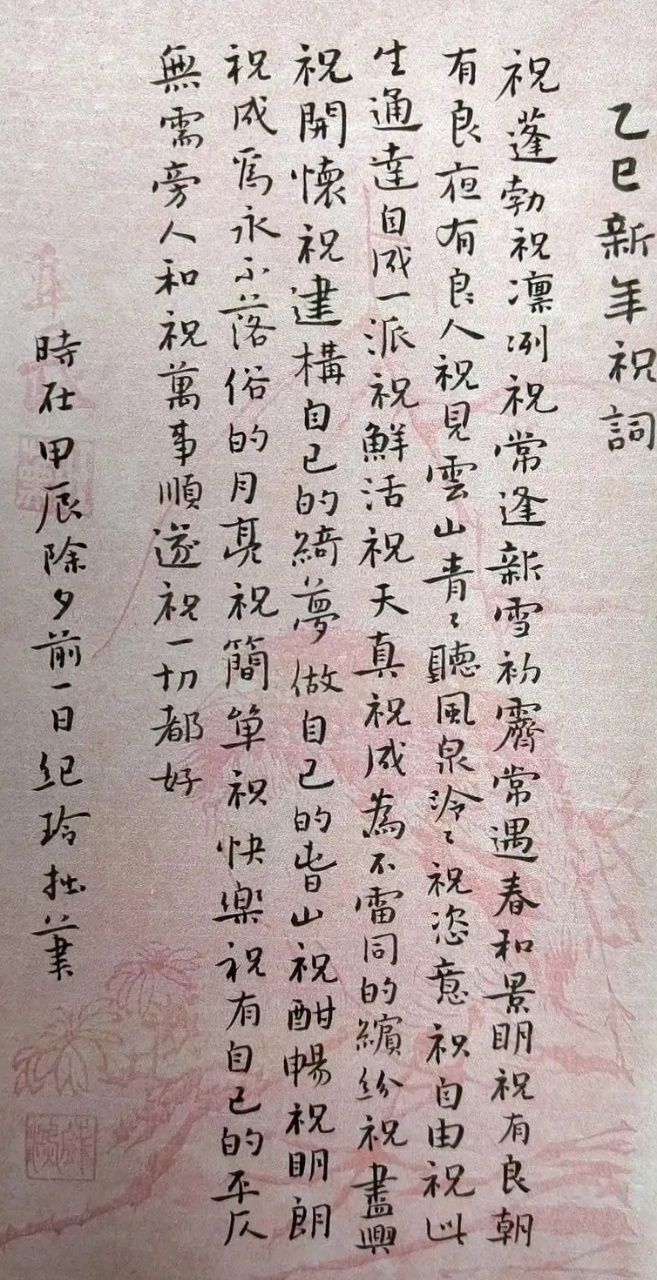 乙巳新年祝詞
祝蓬勃祝凜冽祝常逢新雪初霽常遇春和景明祝有良朝
有良夜有良人祝見雲山青〻聽風泉泠〻祝恣意祝自由祝此
生通達自成一派祝鮮活祝天真祝成為不雷同的繽紛祝盡興
祝開懷祝建構自己的綺夢做自己的春山祝酣暢祝明朗
祝成爲永不落俗的月亮祝簡單祝快樂祝有自己的平仄
無需旁人和祝萬事順遂祝一切都好
時在甲辰除夕前一日紀玲拙筆